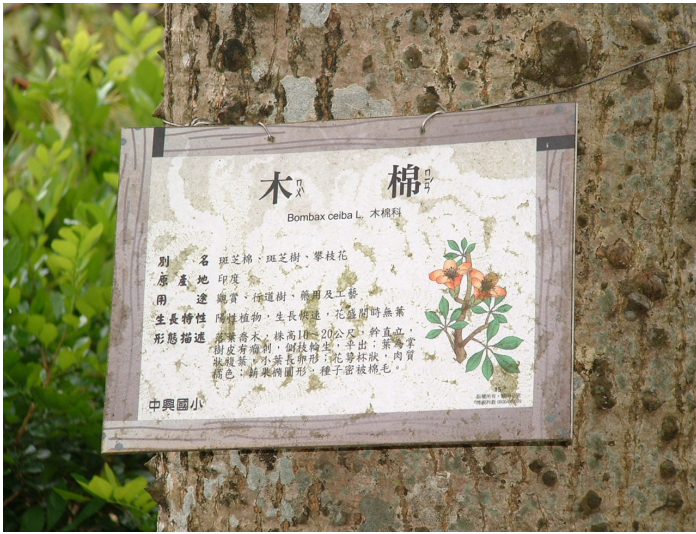 木ㄇㄨˋ 棉ㄇㄧㄢˊ
Bombax ceiba L. 木棉科
別名 斑芝棉、斑芝樹、攀枝花
原產地 印度
用途 觀賞、行道樹、藥用及工藝
生長特性 陽性植物，生長快速，花盛開時無葉
形態描述 落葉喬木，株高10~20公尺，幹直立，
樹皮有瘤刺，側枝輪生，平出；葉為掌
狀複葉，小葉長卵形；花萼杯狀，肉質
橘色；蒴果橢圓形，種子密被棉毛。
中興國小